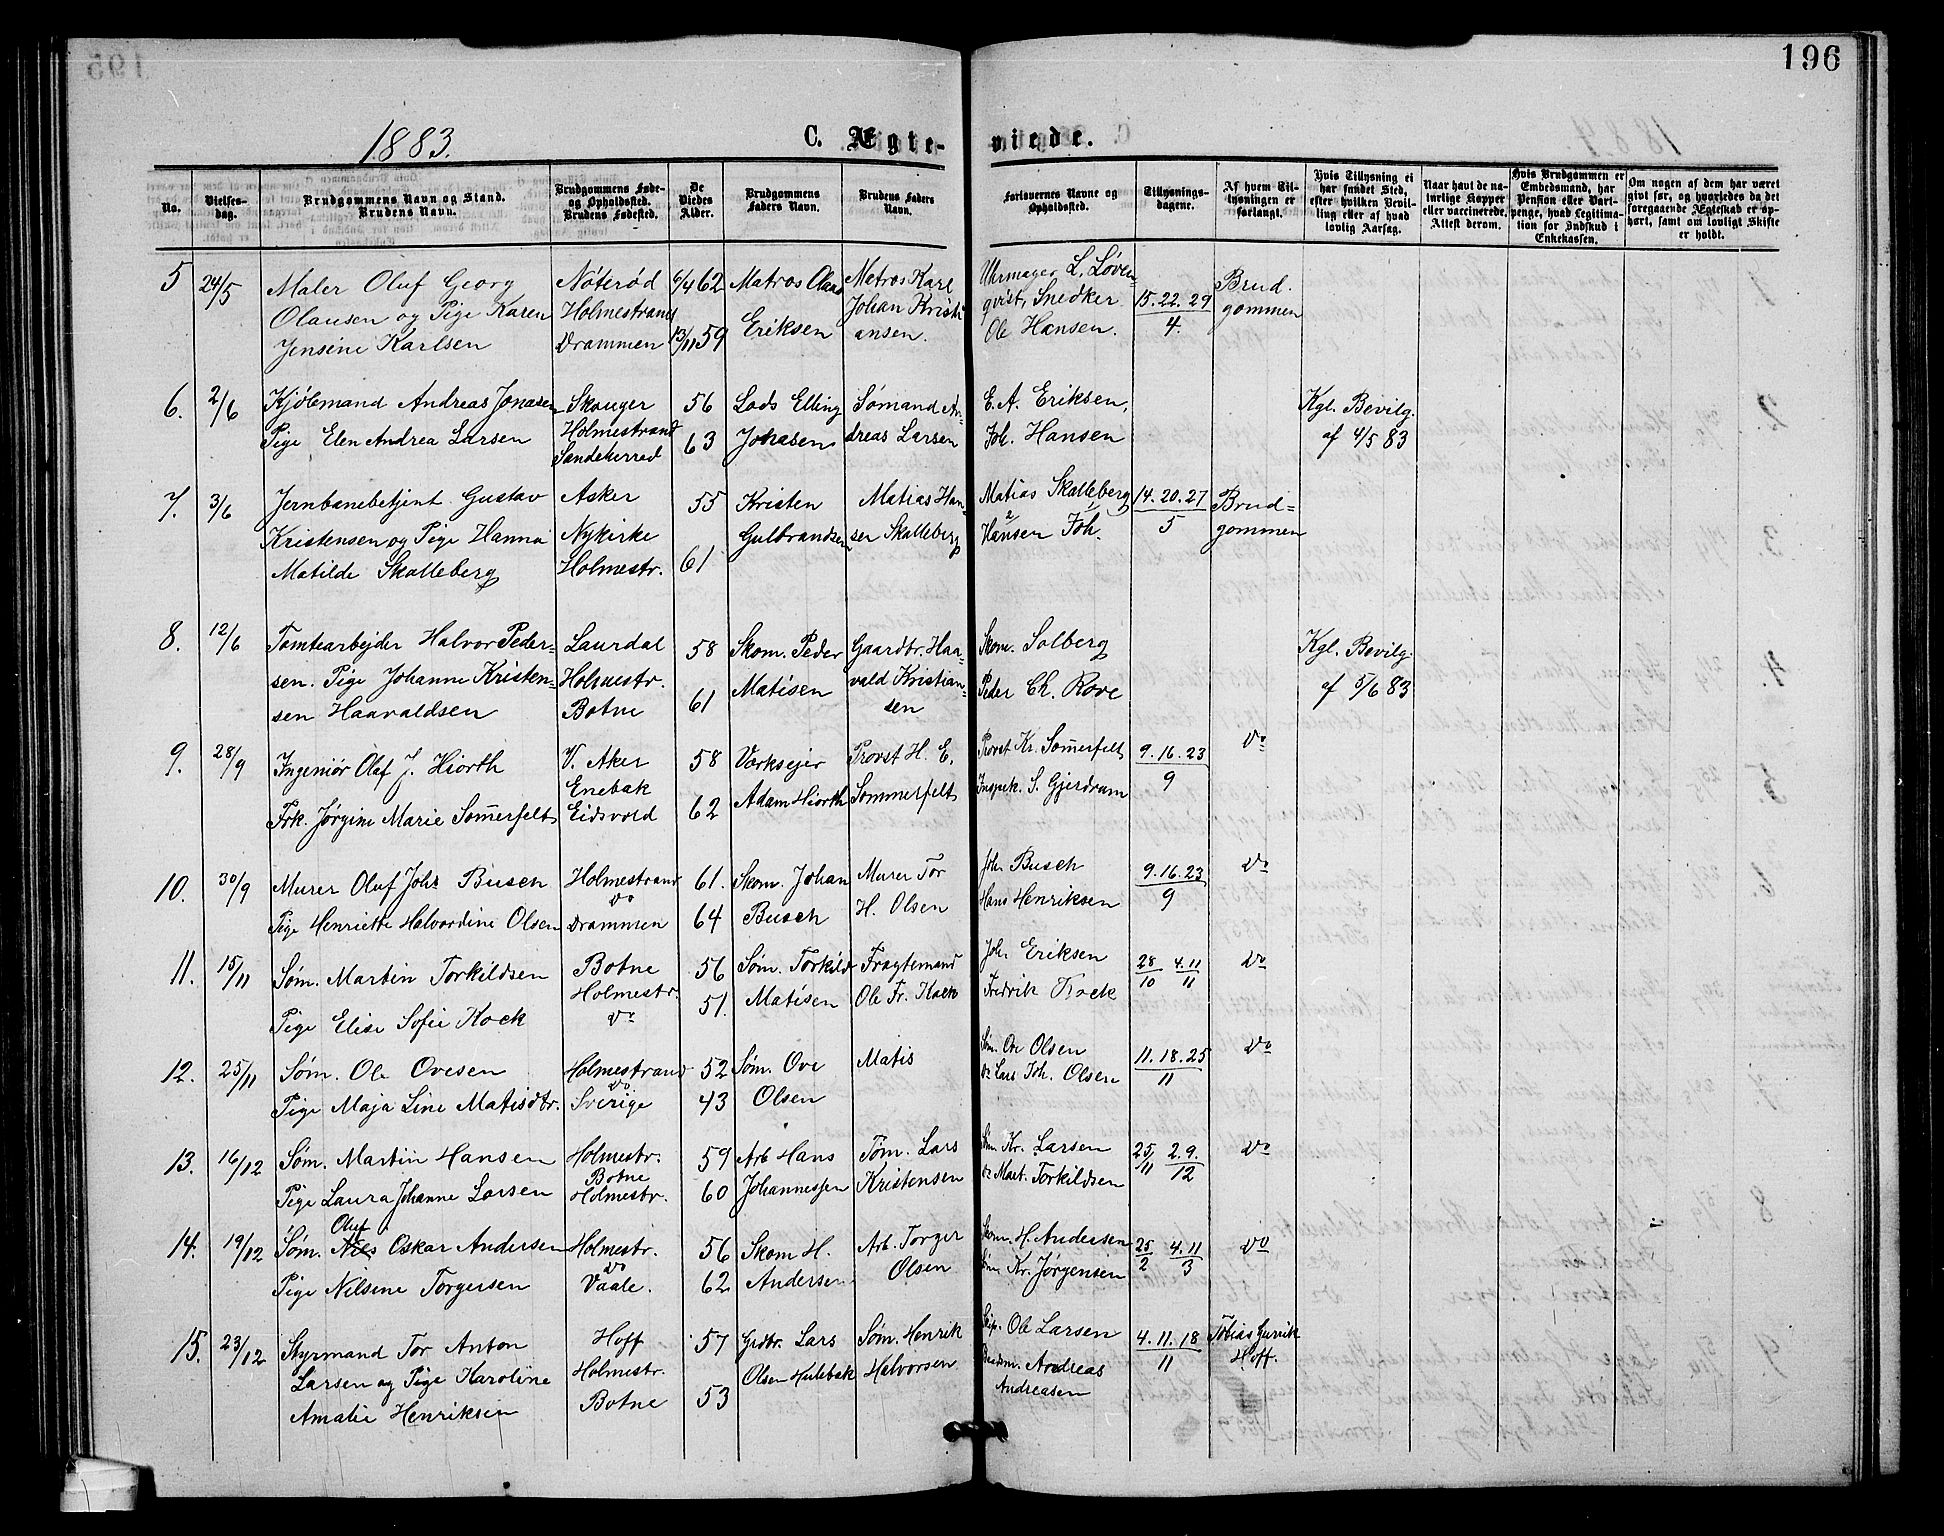 196
1883.
C. Ægte- viede.
No. | Vielses-dag. | Brudgommens Navn og Stand. Brudens Navn. | Brudgommens Føde- og Opholdsted. Brudens Fødested. | De Viedes Alder. | Brudgommens Faders Navn. | Brudens Faders Navn. | Forlovernes Navne og Opholdsted. | Tillysnings-dagene. | Af hvem Til-lysningen er forlangt. | Hvis Tillysning ei har fundet Sted, efter hvilken Bevil-ling eller af hvad lovlig Aarsag. | Naar havt de na-turlige Kopper eller vaccinerede, Attest derom. | Hvis Brudgommen er Embedsmand, har Pension eller Vart-penge, hvad Legitima-tion for Indskud i Enkekassen. | Om nogen af dem har været givt før, og hvorledes da det foregaaende Ægteskab er op-hørt, samt om lovligt Skifte er holdt.
5 | 24/5 | Maler Oluf Georg | Nøterød | 6/4 62 | Matros Olaus | Matros Karl | Uhrmager L. Løven- | 15. 22. 29 | Brud-
Olausen og Pige Karen | Holmestrand | Eriksen | Johan Kristi- | qvist, Snedker | 4. | gommen
Jensine Karlsen | Drammen | 13/11 59 | ansen. | Ole Hansen.
6. | 2/6 | Kjøbmand Andreas Jonasen | Skouger | 56 | Lods Elling | Sømand An- | E. A. Eriksen, | Kgl. Bevilg.
Pige Elen Andrea Larsen | Holmestrand | 63 | Johasen | dreas Larsen | Joh. Hansen | af 4/5 83
Sandeherred
7. | 3/6 | Jernbanebetjent Gustav | Asker | 55 | Kristen | Matias Han- | Matias Skalleberg | 14. 20. 27 | Brud-
Kristensen og Pige Hanna | Nykirke | Gulbrandsen | sen Skalleberg | Hansen Joh. | 5 | gommen
Matilde Skalleberg | Holmestr. | 61
8. | 12/6 | Tomtearbejder Halvor Peder- | Laurdal | 58 | Skom. Peder | Gaardbr. Haa- | Skom. Solberg | Kgl. Bevilg.
sen. Pige Johanne Kristen- | Holmestr. | Matisen | vald Kristian- | Peder Ch. Rove | af 5/6 83
sen Haavaldsen | Botne | 61 | sen
9. | 28/9 | Ingeniør Olaf J. Hiorth | V. Aker | 58 | Værksejer | Provst H. E. | Provst Kr. Somerfelt | 9. 16. 23 | Do
Enebak | Adam Hiorth | Sommerfelt | Inspek. S. Gjerdrum | 9
Frk. Jørgine Marie Somerfelt | Eidsvold | 62
10. | 30/9 | Murer Oluf Johs Busch | Holmestrand | 61. | Skom. Johan | Murer Tor | Joh. Busch | 9. 16. 23 | Do
Do
Pige Henriette Halvordine Olsen | Drammen | 64 | Busch | H. Olsen | Hans Henriksen | 9
11. | 15/11 | Søm. Martin Torkildsen | Botne | 56 | Søm. Torkild | Fragtemand | Joh. Eriksen | 28/10 4.11/11 | Do
Holmestr. | 51. | Matisen | Ole Fr. Kock | Fredrik Kock
Pige Elise Sofie Kock | Do
12. | 25/11 | Søm. Ole Ovesen | Holmestrand | 52 | Søm. Ove | Matis | Søm. Ove Olsen | 11. 18. 25 | Do
Do
Pige Maja Line Matisdtr. | Sverige | 43 | Olsen | Lars Joh. Olsen | 11
13. | 16/12 | Søm. Martin Hansen | Holmestr. | 59 | Arb Hans | Tøm. Lars | Søm Kr. Larsen | 25/11 2.9./12 | Do
Botne
Pige Laura Johanne Larsen | Holmestr. | 60 | Johannessen | Kristensen | Mart. Torkildsen
Oluf
14. | 19/12 | Søm. Nils Oskar Andersen | Holmestr. | 56 | Skom H. | Arb. Torger | Skom. H. Andersen | 25/2 4.11/3 | Do
Do
Pige Nilsine Torgersen | Vaale. | 62 | Andersen | Olsen | Søm Kr. Jørgensen
15. | 23/12 | Styrmand Tor Anton | Hoff | 57 | Grdbr. Lars | Søm. Henrik | Skip. Ole Larsen | 4. 11. 18 | Tobias Gurvik
Larsen og Pige Karoline | Holmestr. | Olsen Hulebak | Halvorsen | Andreas | 11 | Hoff.
Amalie Henriksen | Botne | 53 | Andreasen